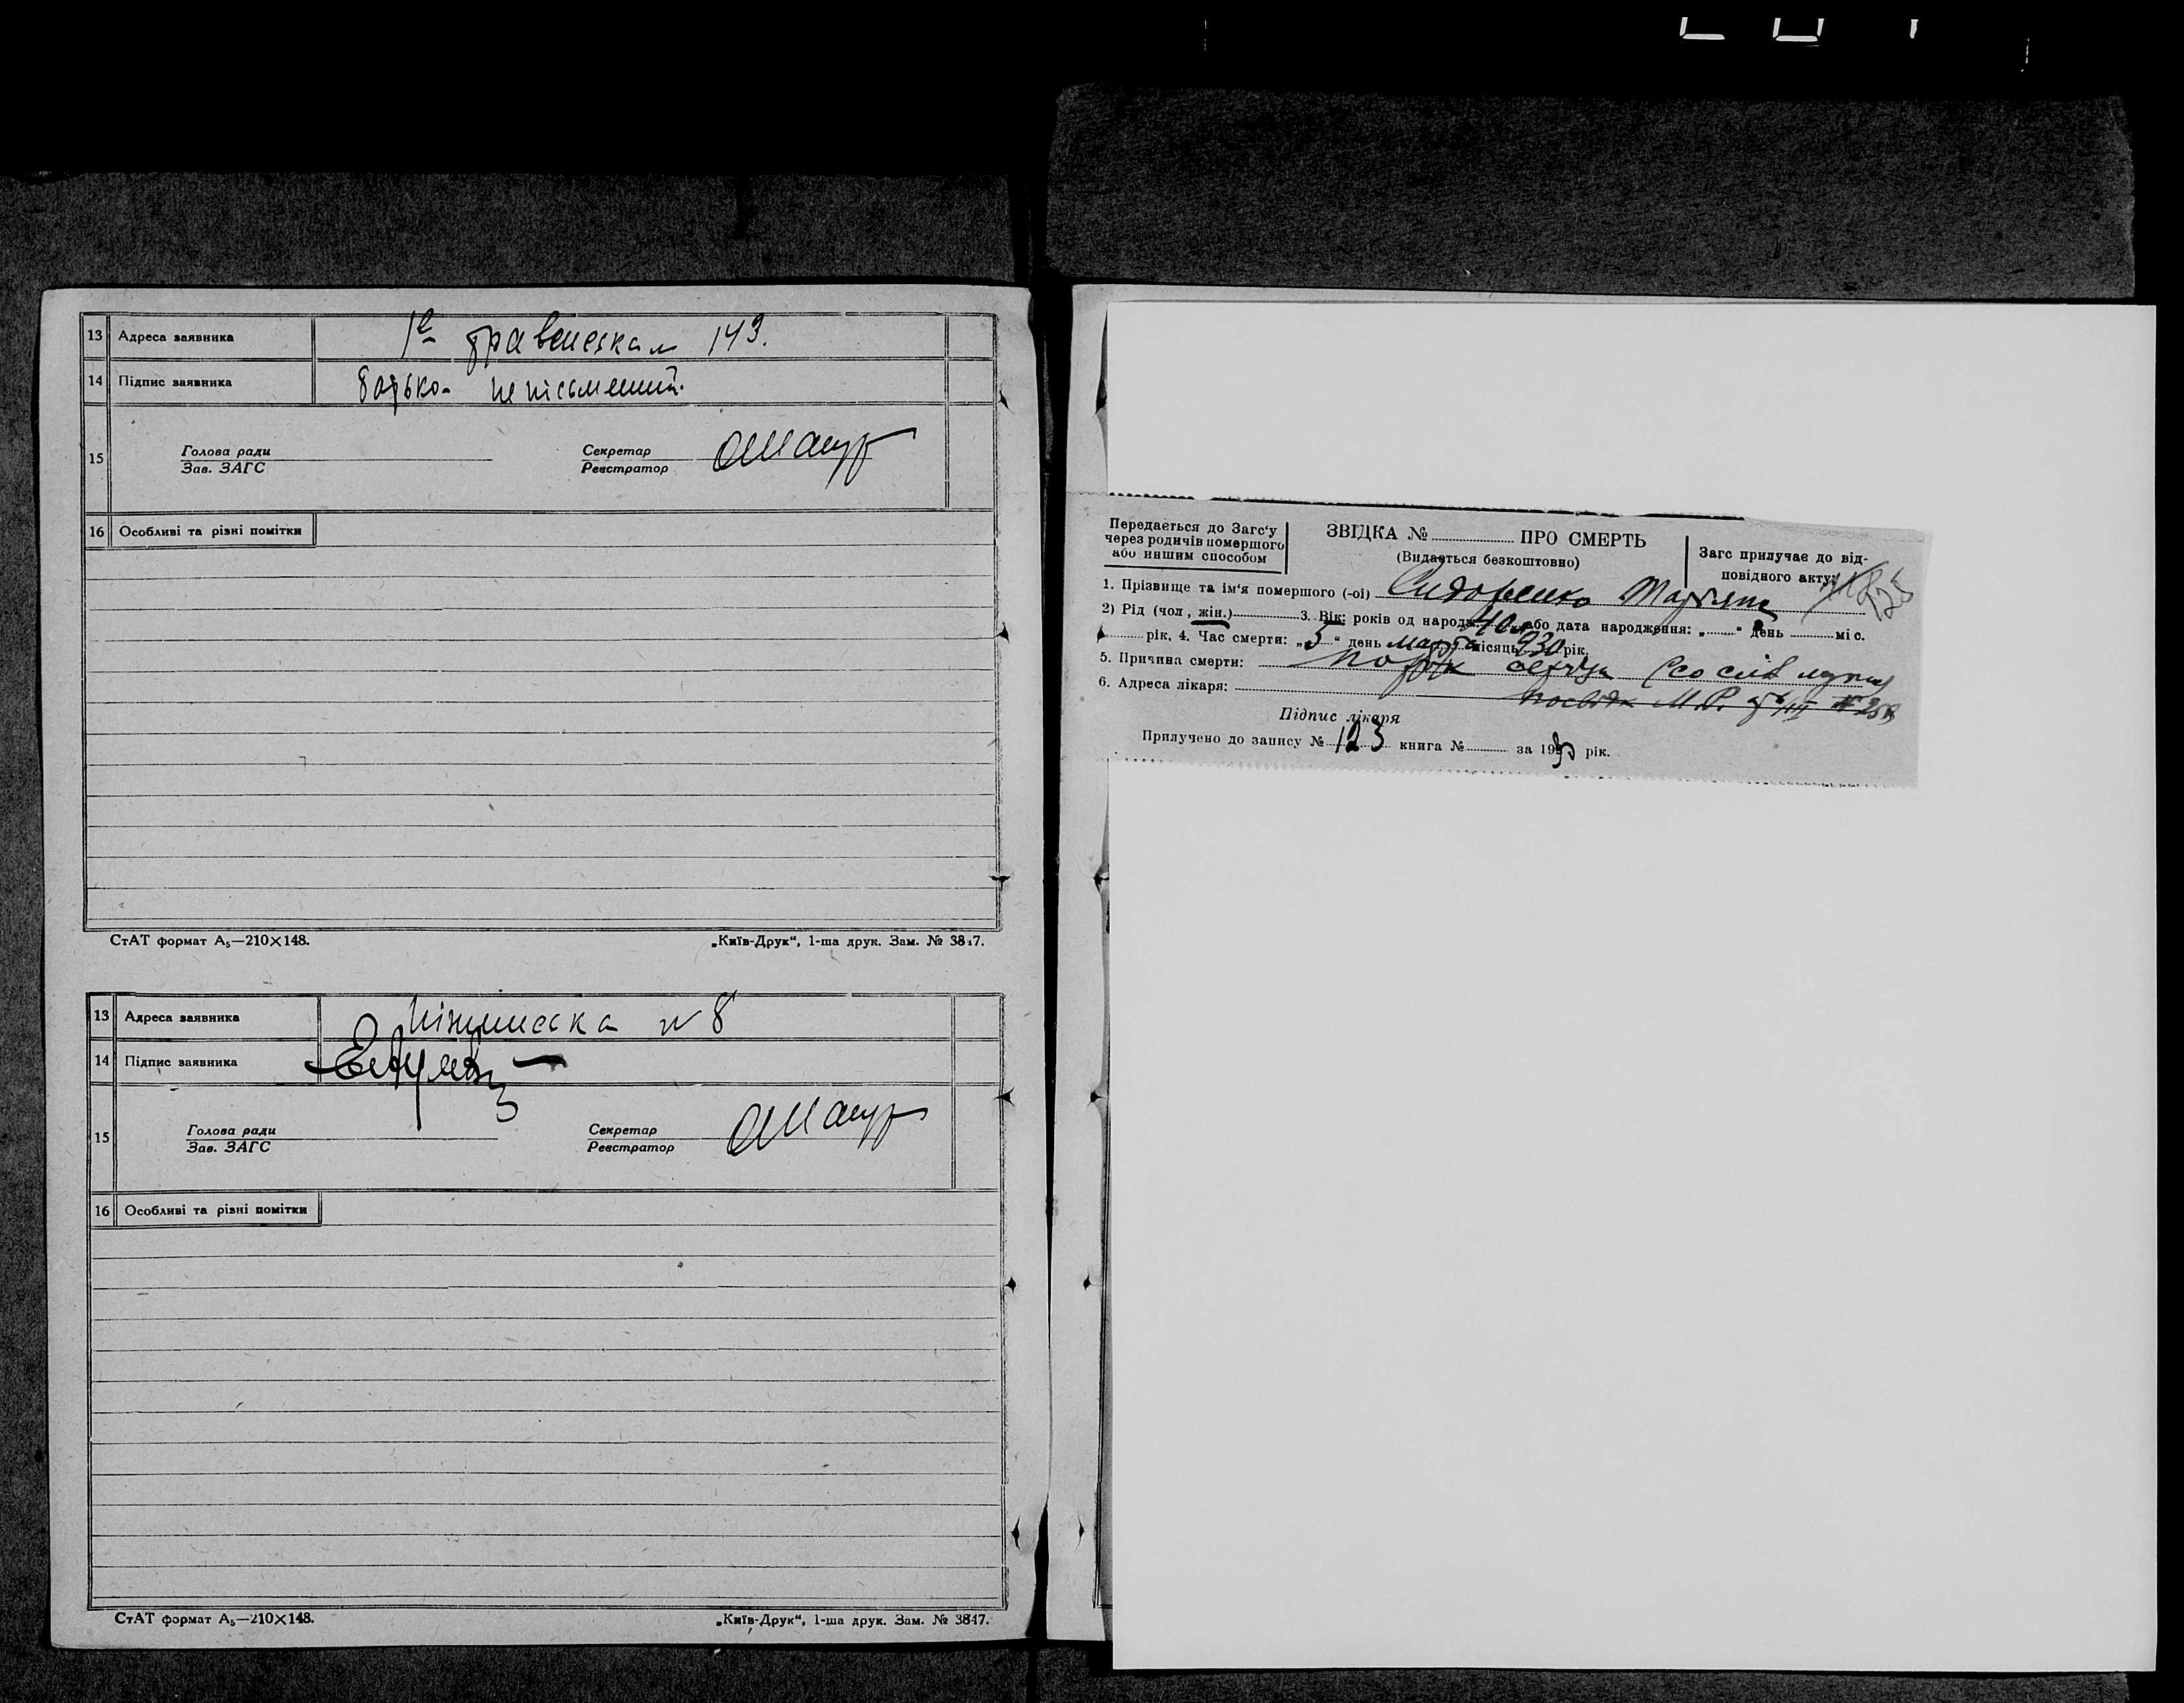 13 Адреса заявника 1е травенська 149.
14 Підпис заявника батько - неписьменний.
15 Голова ради Секретар
Зав. ЗАГС Реєстратор
16 Особливі та різні помітки
СтАТ формат А₅—210×148. „Київ-Друк“, 1-ша друк. Зам. № 3817.
13 Адреса заявника Ніжинська № 8
14 Підпис заявника
15 Голова ради Секретар
Зав. ЗАГС Реєстратор
16 Особливі та різні помітки
СтАТ формат А₅—210×148. „Київ-Друк“, 1-ша друк. Зам. № 3817.
Передається до Загс'у
через родичів помершого
або иншим способом
ЗВІДКА № ПРО СМЕРТЬ
(Видається безкоштовно)
Загс прилучає до від-
повідного акту:
1. Прізвище та ім'я помершого (-ої) Сидоренко
2) Рід (чол, жін.) 3. Вік: років од народж. 40 або дата народження: „ “ день міс.
рік. 4. Час смерти: „5“ день марта місяць 930 рік.
5. Причина смерти: порок сердца (со слів
6. Адреса лікаря:
Підпис лікаря
Прилучено до запису № 123 книга № за 1930 рік.